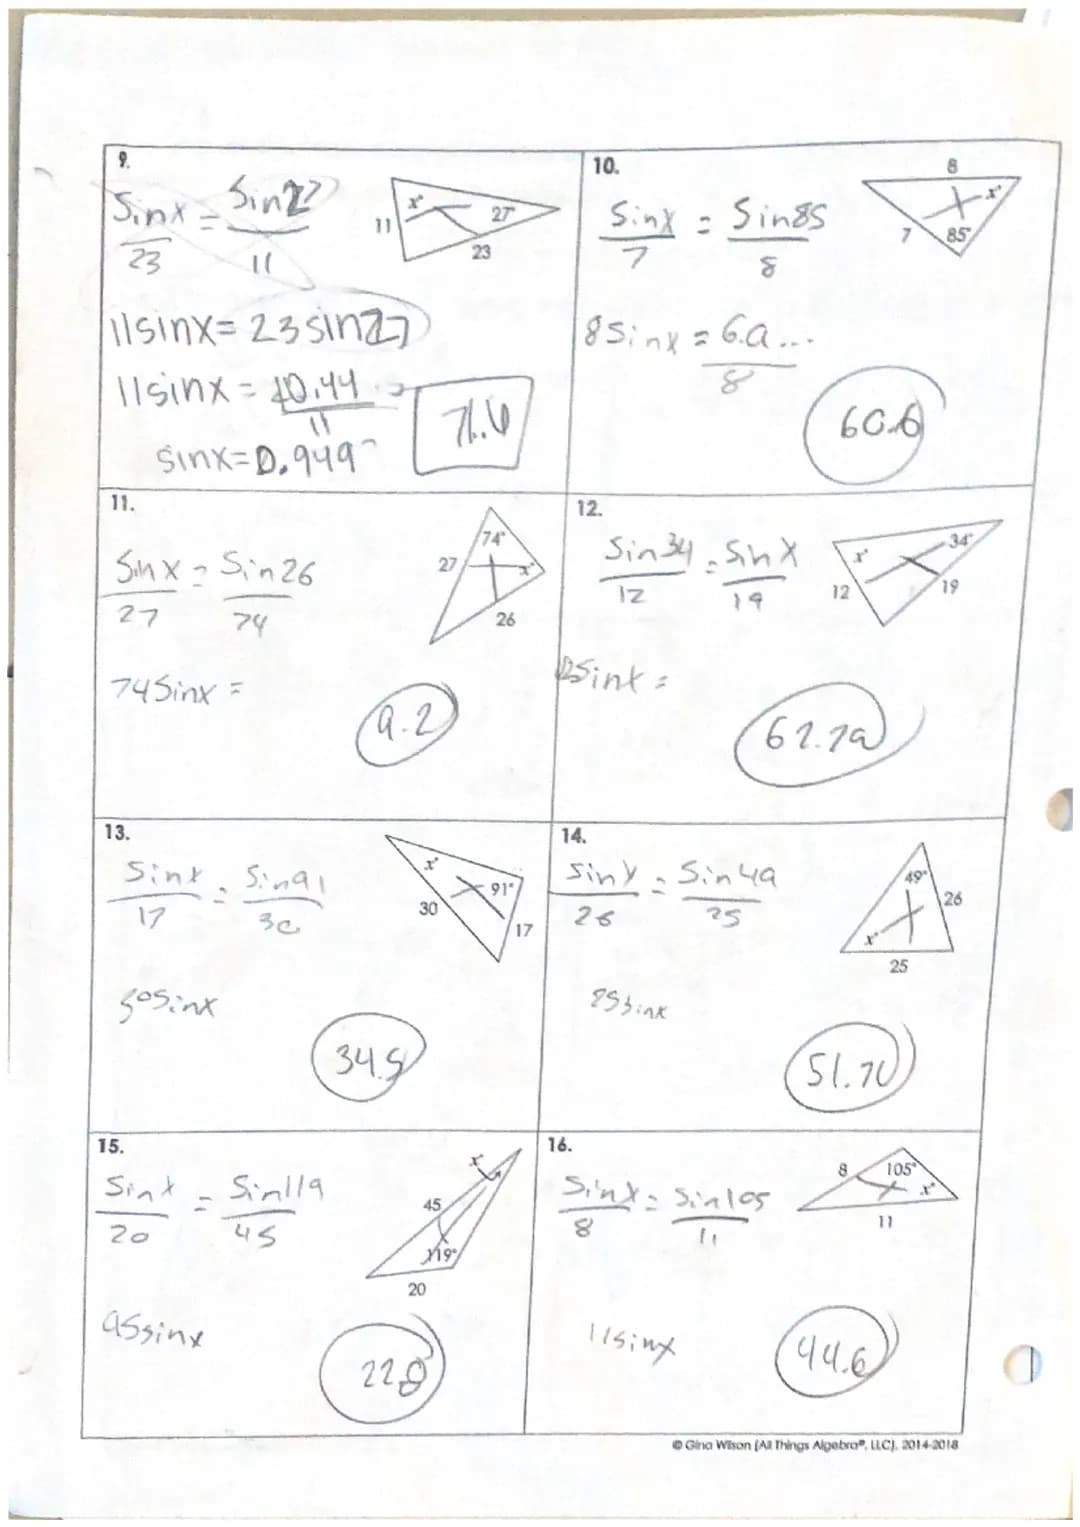 9.
Sinx = Sin27
23 11
x°
27°
11
23
11sinx = 23sin27
11sinx = 10.44
11
sinx=0.949
71.6
10.
Sinx = Sin85
7 8
8
x°
7
85°
8Sinx = 6.9...
8
60.6
11.
Sinx = Sin26
27 74
74°
27
x°
26
74Sinx =
9.2
12.
Sin34 = Sinx
12 19
x°
34°
12
19
12Sinx =
62.29
13.
Sinx = Sin91
17 30
x°
91°
30
17
30Sinx
34.5
14.
Sinx = Sin49
26 25
49°
26
x°
25
25sinx
51.70
15.
Sinx = Sin119
20 45
x
45
119°
20
45sinx
22.8
16.
Sinx = Sin105
8 11
8
105°
x°
11
11sinx
44.6
© Gina Wilson (All Things Algebra®, LLC), 2014-2018